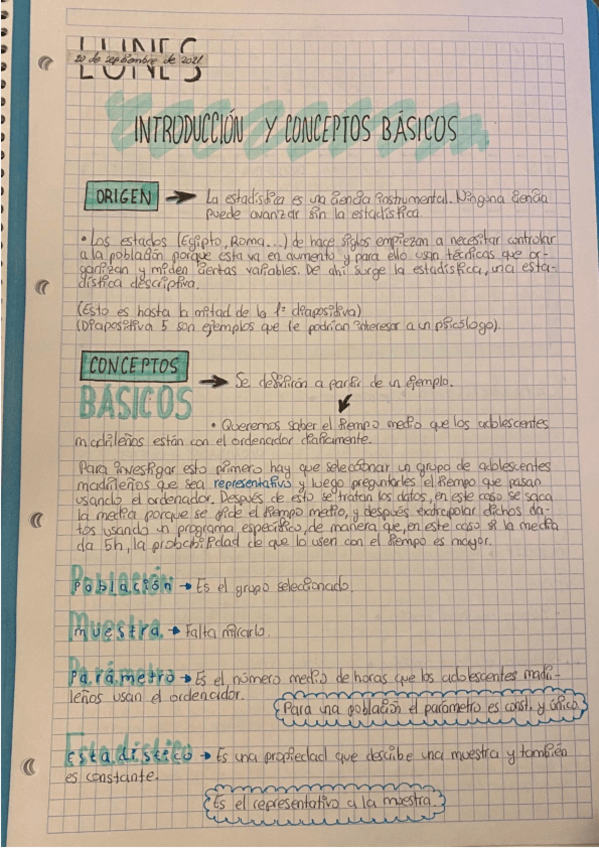 LUNES
20 de septiembre de 2021
INTRODUCCIÓN Y CONCEPTOS BÁSICOS
ORIGEN → La estadística es una ciencia instrumental. Ninguna ciencia
puede avanzar sin la estadística.
• Los estados (Egipto, Roma...) de hace siglos empiezan a necesitar controlar
a la población porque esta va en aumento y para ello usan técnicas que or-
ganizan y miden ciertas variables. De ahí surge la estadística, una esta-
dística descriptiva.
(Esto es hasta la mitad de la 1ª diapositiva)
(Diapositiva 5 son ejemplos que le podrían interesar a un psicólogo).
CONCEPTOS
BÁSICOS → Se definirán a partir de un ejemplo.
• Queremos saber el tiempo medio que los adolescentes
madrileños están con el ordenador diariamente.
Para investigar esto primero hay que seleccionar un grupo de adolescentes
madrileños que sea representativo y luego preguntarles el tiempo que pasan
usando el ordenador. Después de esto se tratan los datos, en este caso se saca
la media porque se pide el tiempo medio, y después extrapolar dichos da-
tos usando un programa específico, de manera que, en este caso si la media
da 5h, la probabilidad de que lo usen con el tiempo es mayor.
Población → Es el grupo seleccionado.
Muestra → Falta mirarlo.
Parámetro → Es el número medio de horas que los adolescentes madri-
leños usan el ordenador.
Para una población el parámetro es const. y único.
Estadístico → Es una propiedad que describe una muestra y también
es constante.
Es el representativo a la muestra.